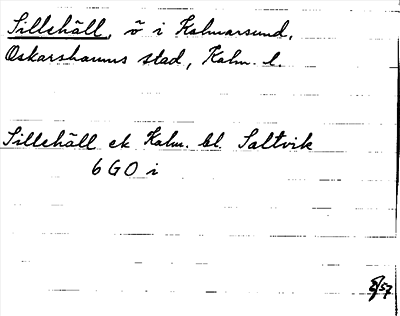 Sillehäll, ö i Kalmarsund,
Oskarshamns stad, Kalm. l.
Sillehäll ek Kalm. bl. Saltvik
6 G O i
/57